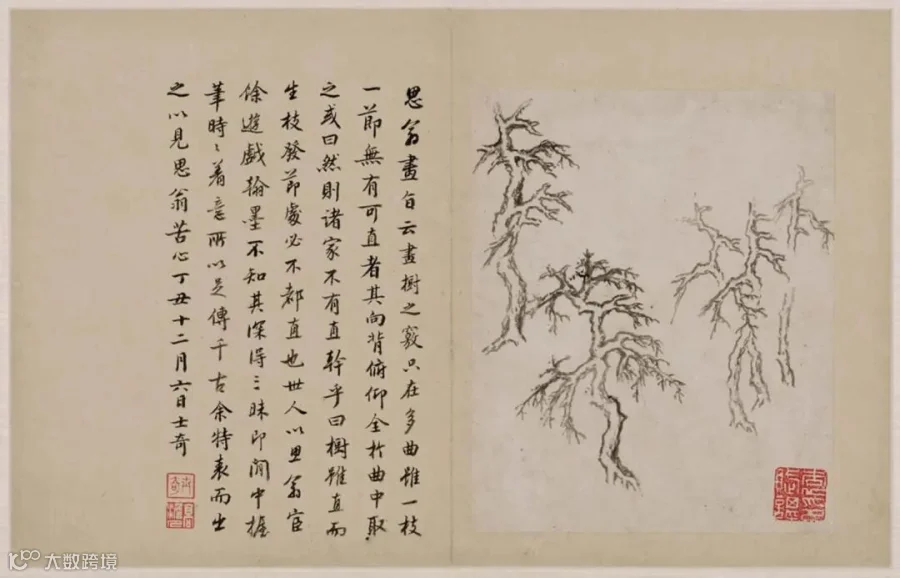 思翁畫旨云畫樹之竅只在多曲雖一枝
一節無有可直者其向背俯仰全於曲中取
之或曰然則諸家不有直幹乎曰樹雖直而
生枝發節處必不都直也世人以思翁宦
餘遊戲翰墨不知其深得三昧即閒中握
筆時〻着意所以足傳千古余特表而出
之以見思翁苦心丁丑十二月六日士奇
大数跨境